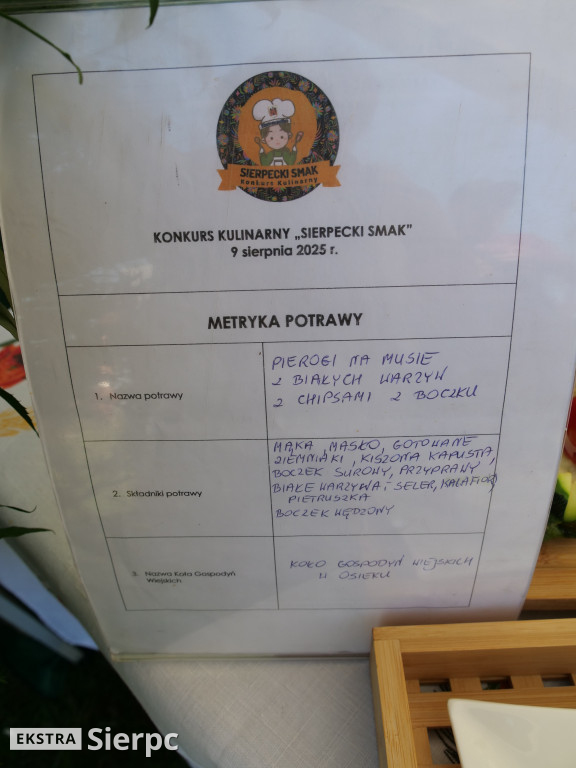 SIERPECKI SMAK
Konkurs Kulinarny
KONKURS KULINARNY „SIERPECKI SMAK”
9 sierpnia 2025 r.
METRYKA POTRAWY
1. Nazwa potrawy
PIEROGI NA MUSIE
Z BIAŁYCH WARZYW
Z CHIPSAMI Z BOCZKU
2. Składniki potrawy
MĄKA, MASŁO, GOTOWANE
ZIEMNIAKI, KISZONA KAPUSTA,
BOCZEK SUROWY, PRZYPRAWY
BIAŁE WARZYWA: SELER, KALAFIOR,
PIETRUSZKA
BOCZEK WĘDZONY
3. Nazwa Koła Gospodyń
Wiejskich
KOŁO GOSPODYŃ WIEJSKICH
W OSIEKU
EKSTRA Sierpc